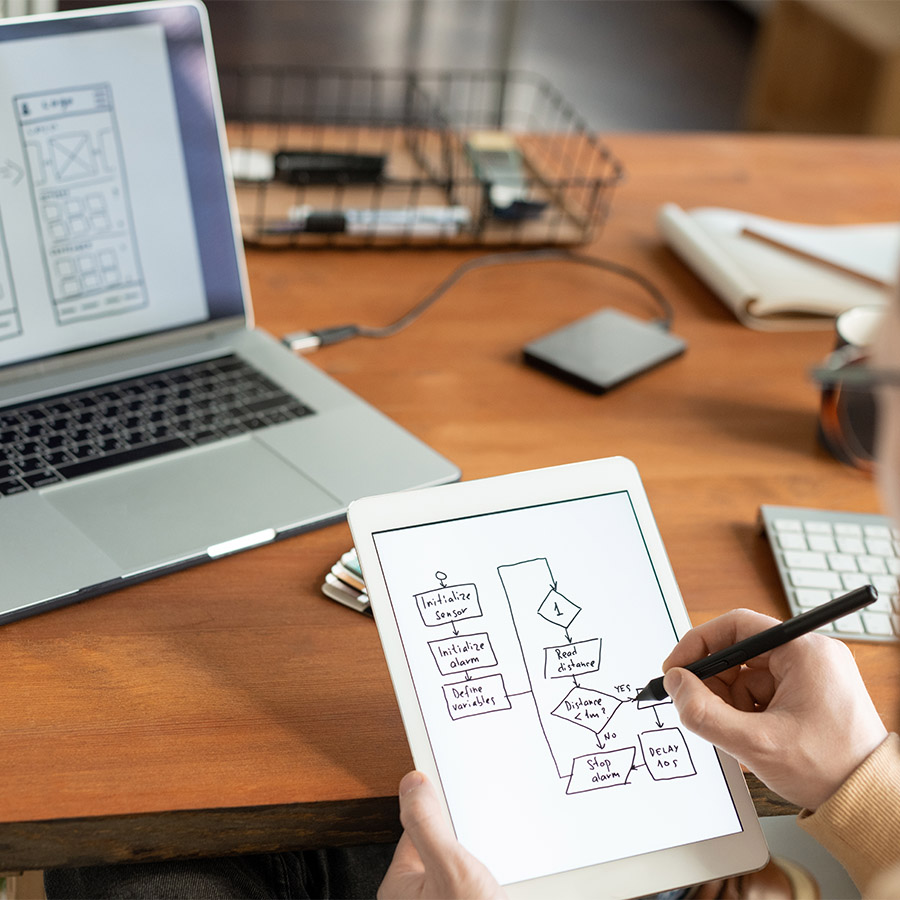 Logo
Initialize
sensor
Initialize
alarm
Define
variables
1
Read
distance
Distance
< 1m?
YES
NO
DELAY
10s
Stop
alarm